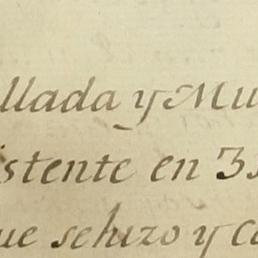 llada y Mu
istente en 33
ue se hizo y ca